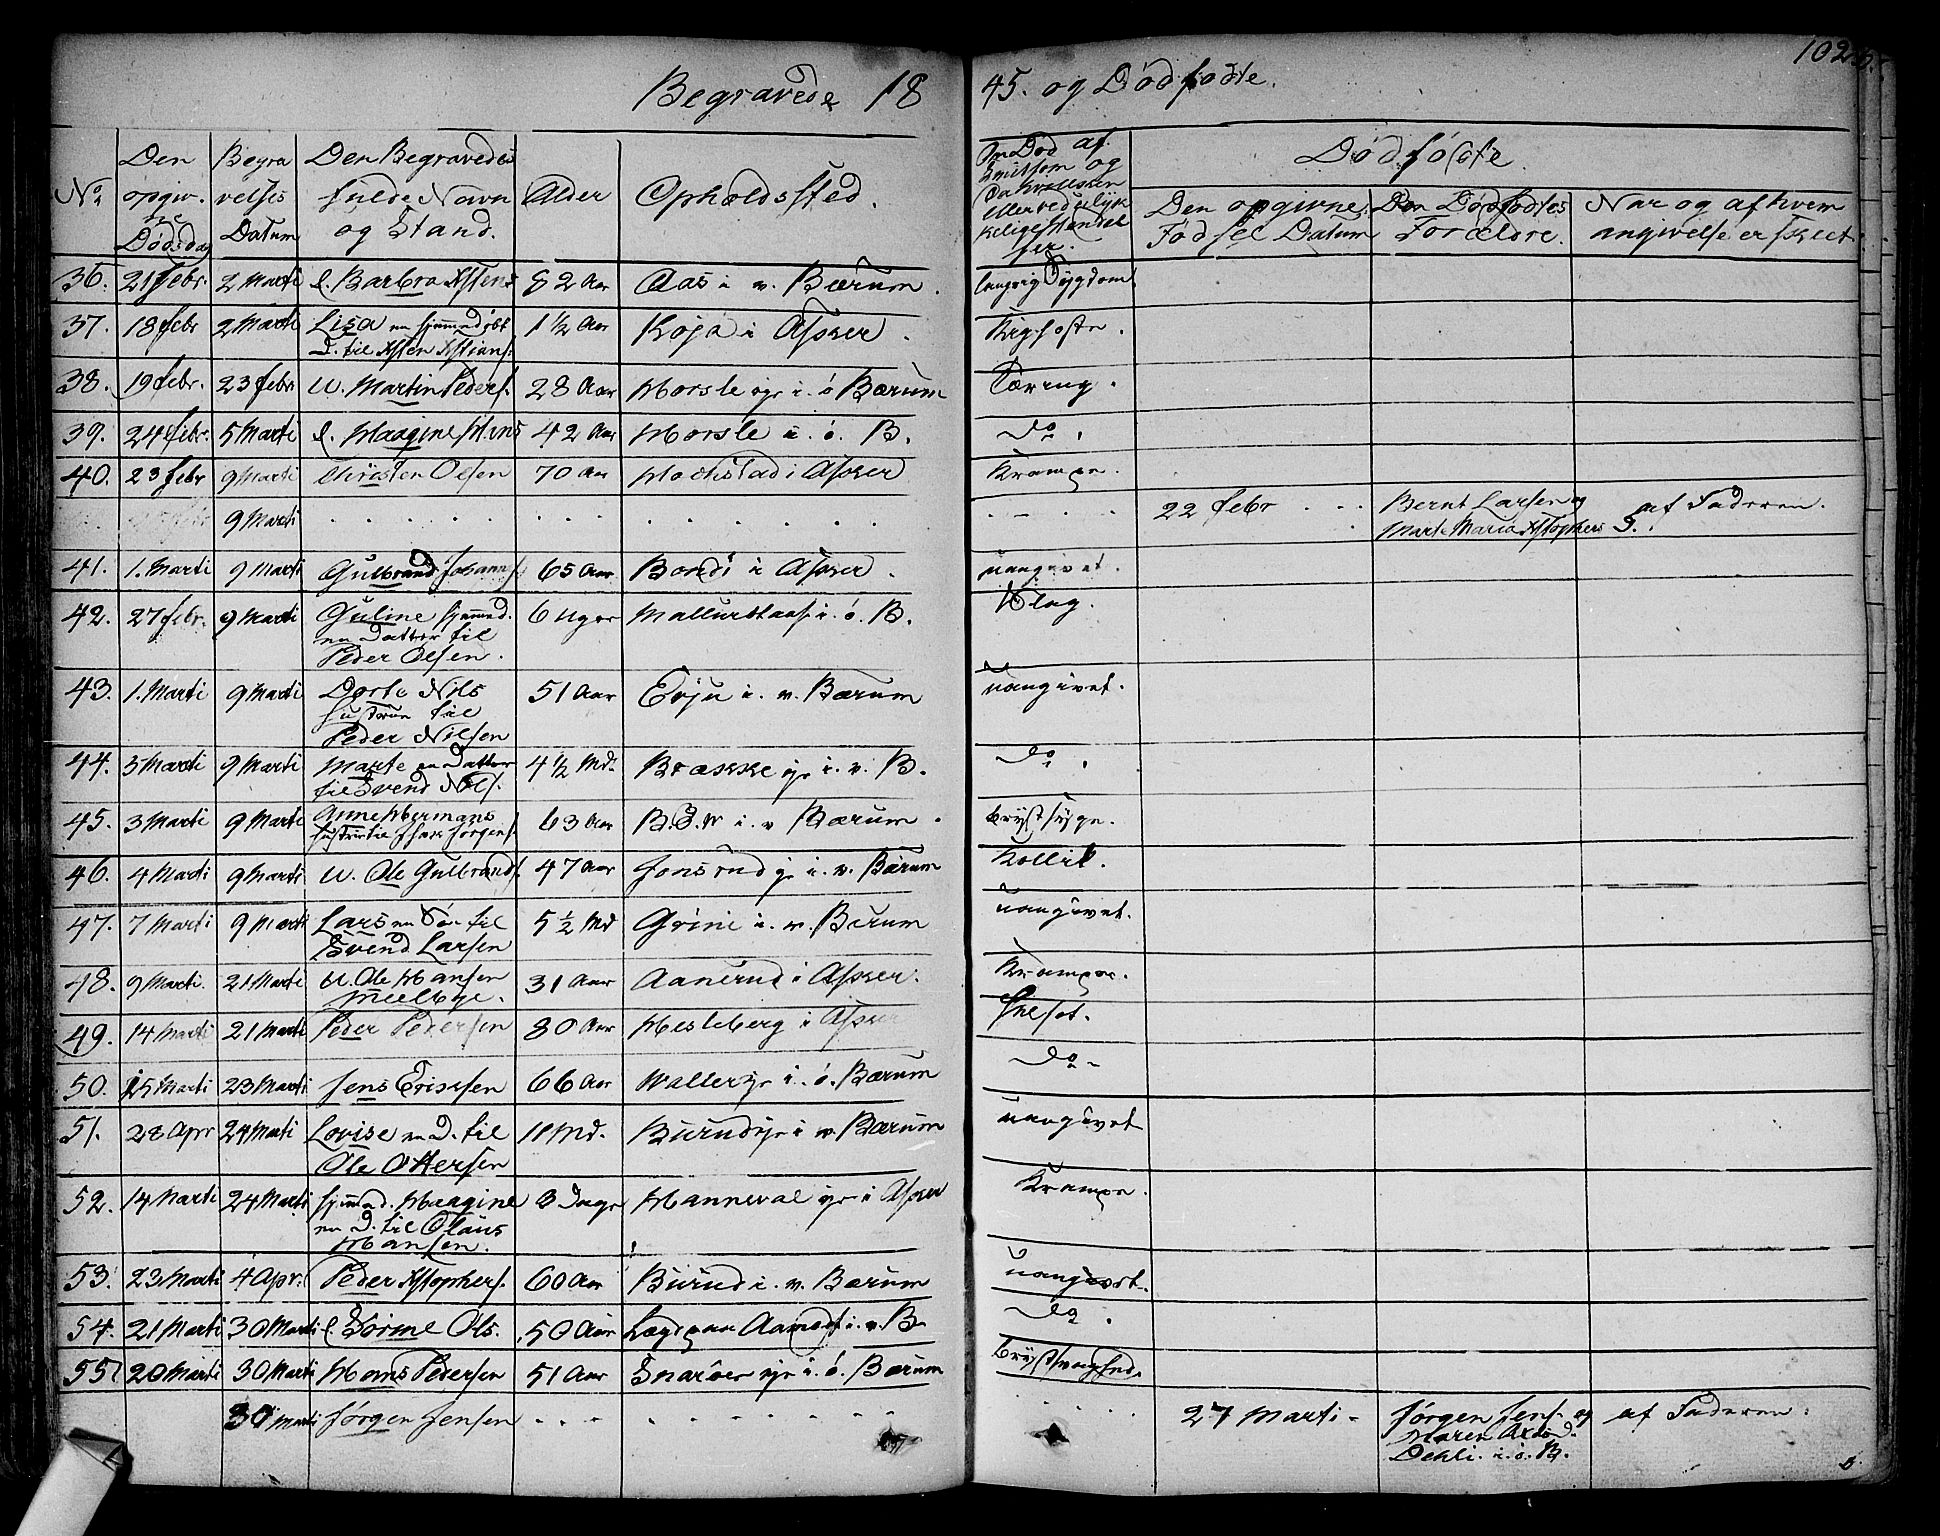 102
Begravede 1845. og Dødfødte.
No Den opgivne Dødsdag Begravelses Datum Den Begravedes fulde Navn og Stand. Alder Opholdssted. Om Død af Smitsom og
Dødføste.
Den opgivne Fødsel Datum Den Dødfødtes Forældre. Nar og af hvem angivelse er skeet.
36. 21 febr. 2 Marti E. Barbra Xstens 82 Aar Aas i v. Bærum. langvig Sygdom.
37. 18 febr 2 Marti Lisa en hjemmedøbt 1½ Aar Køja i Asker. Kighoste.
D. til Xsten Xstians.
38. 19 febr. 23 febr. U. Martin Peders. 28 Aar Horsle eje i. ö Bærum Tæring.
39. 24 febr. 5 Marti E. Haagine Hans 42 Aar Horsle i. ö. B. do.
40. 23 febr 9 Marti Christen Olsen 70 Aar Hochstad i Asker Krampe.
9 Marti 22 febr Bernt Larsen og af Faderen.
Marte Maria Xstophers D.
41. 1. Marti 9 Marti Gulbrand Johanns. 65 Aar Bondi i Asker. uangivet.
42. 27 febr. 9 Marti Guline hjemmed. 6 uger i. ö. B. Slag.
en Datter til
Peder Olsen.
43. 1. Marti 9 Marti Dorte Nils 51 Aar Evju i. v. Bærum uangivet.
hustrue til
Peder Nilsen
44. 5 Marti 9 Marti Marte en Datter 4½ Md. Brække eje i. v. B. do.
til Svend Nils.
45. 3 Marti 9 Marti Anne Hermans 63 Aar i. v Bærum. brystsyge.
hustrue til Jørgens.
46. 4 Marti 9 Marti U. Ole Gulbrands. 47 Aar Jonsrud eje i. v. Bærum Kollik.
47. 7 Marti 9 Marti Lars en Søn til 5½ Md Grini i. v. Bærum uangivet.
Svend Larsen
48. 9 Marti. 21 Marti U. Ole Hansen 31 Aar Aanerud i Asker. Krampe.
Meelbye.
49. 14 Marti 21 Marti Peder Pedersen 80 Aar Hesleberg i Asker
50. 15 Marti 23 Marti Jens Erichsen 66 Aar Waller eje i. ö. Bærum do
51. 28 Apr 24 Marti Lovise en D. til 11 Md. Burud eje i v. Bærum uangivet
Ole Ottersen
52. 14 Marti 24 Marti hjemmed. Haagine 3 Dage Hanneval eje i Asker Krampe.
en D. til Olaus
Hansen.
53. 23 Marti 4 Apr: Peder Xstophers. 60 Aar Burud i. v. Bærum uangivet.
54. 21 Marti 30 Marti E. Ols. 50 Aar Lægd paa i. v. B. do.
55 20 Marti 30 Marti Hans Pedersen 51 Aar Snarøen eje i. ö. Bærum Brystsvaghed.
30 Marti Jørgen Jensen 27 Marti. Jørgen Jens. og af Faderen.
Maren
Dehli. i. ö. B.